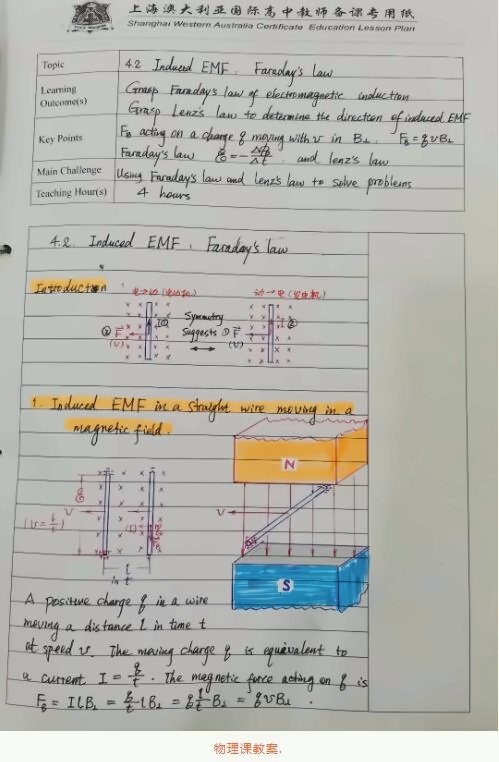 上海澳大利亚国际高中教师备课专用纸
Shanghai Western Australia Certificate Education Lesson Plan
Topic 4.2 Induced EMF. Faraday's law
Learning Outcome(s) Grasp Faraday's law of electromagnetic induction
Grasp Lenz's law to determine the direction of induced EMF
Key Points F_B acting on a charge q moving with v in B⊥. F_B = qvB⊥
Faraday's law ℰ = -ΔΦ_B/Δt. and lenz's law
Main Challenge Using Faraday's law and Lenz's law to solve problems
Teaching Hour(s) 4 hours
4.2. Induced EMF. Faraday's law
Introduction
电→动 (电动机)
动→电 (发电机)
Symmetry
Suggests
② F (v) I ①
① F (v) I ②
1. Induced EMF in a straight wire moving in a
magnetic field.
N
S
v
v
(v = l/t)
l
in t
A positive charge q in a wire
moving a distance l in time t
at speed v. The moving charge q is equivalent to
a current I = q/t. The magnetic force acting on q is
F_B = IlB⊥ = q/t lB⊥ = q l/t B⊥ = qvB⊥.
物理课教案.